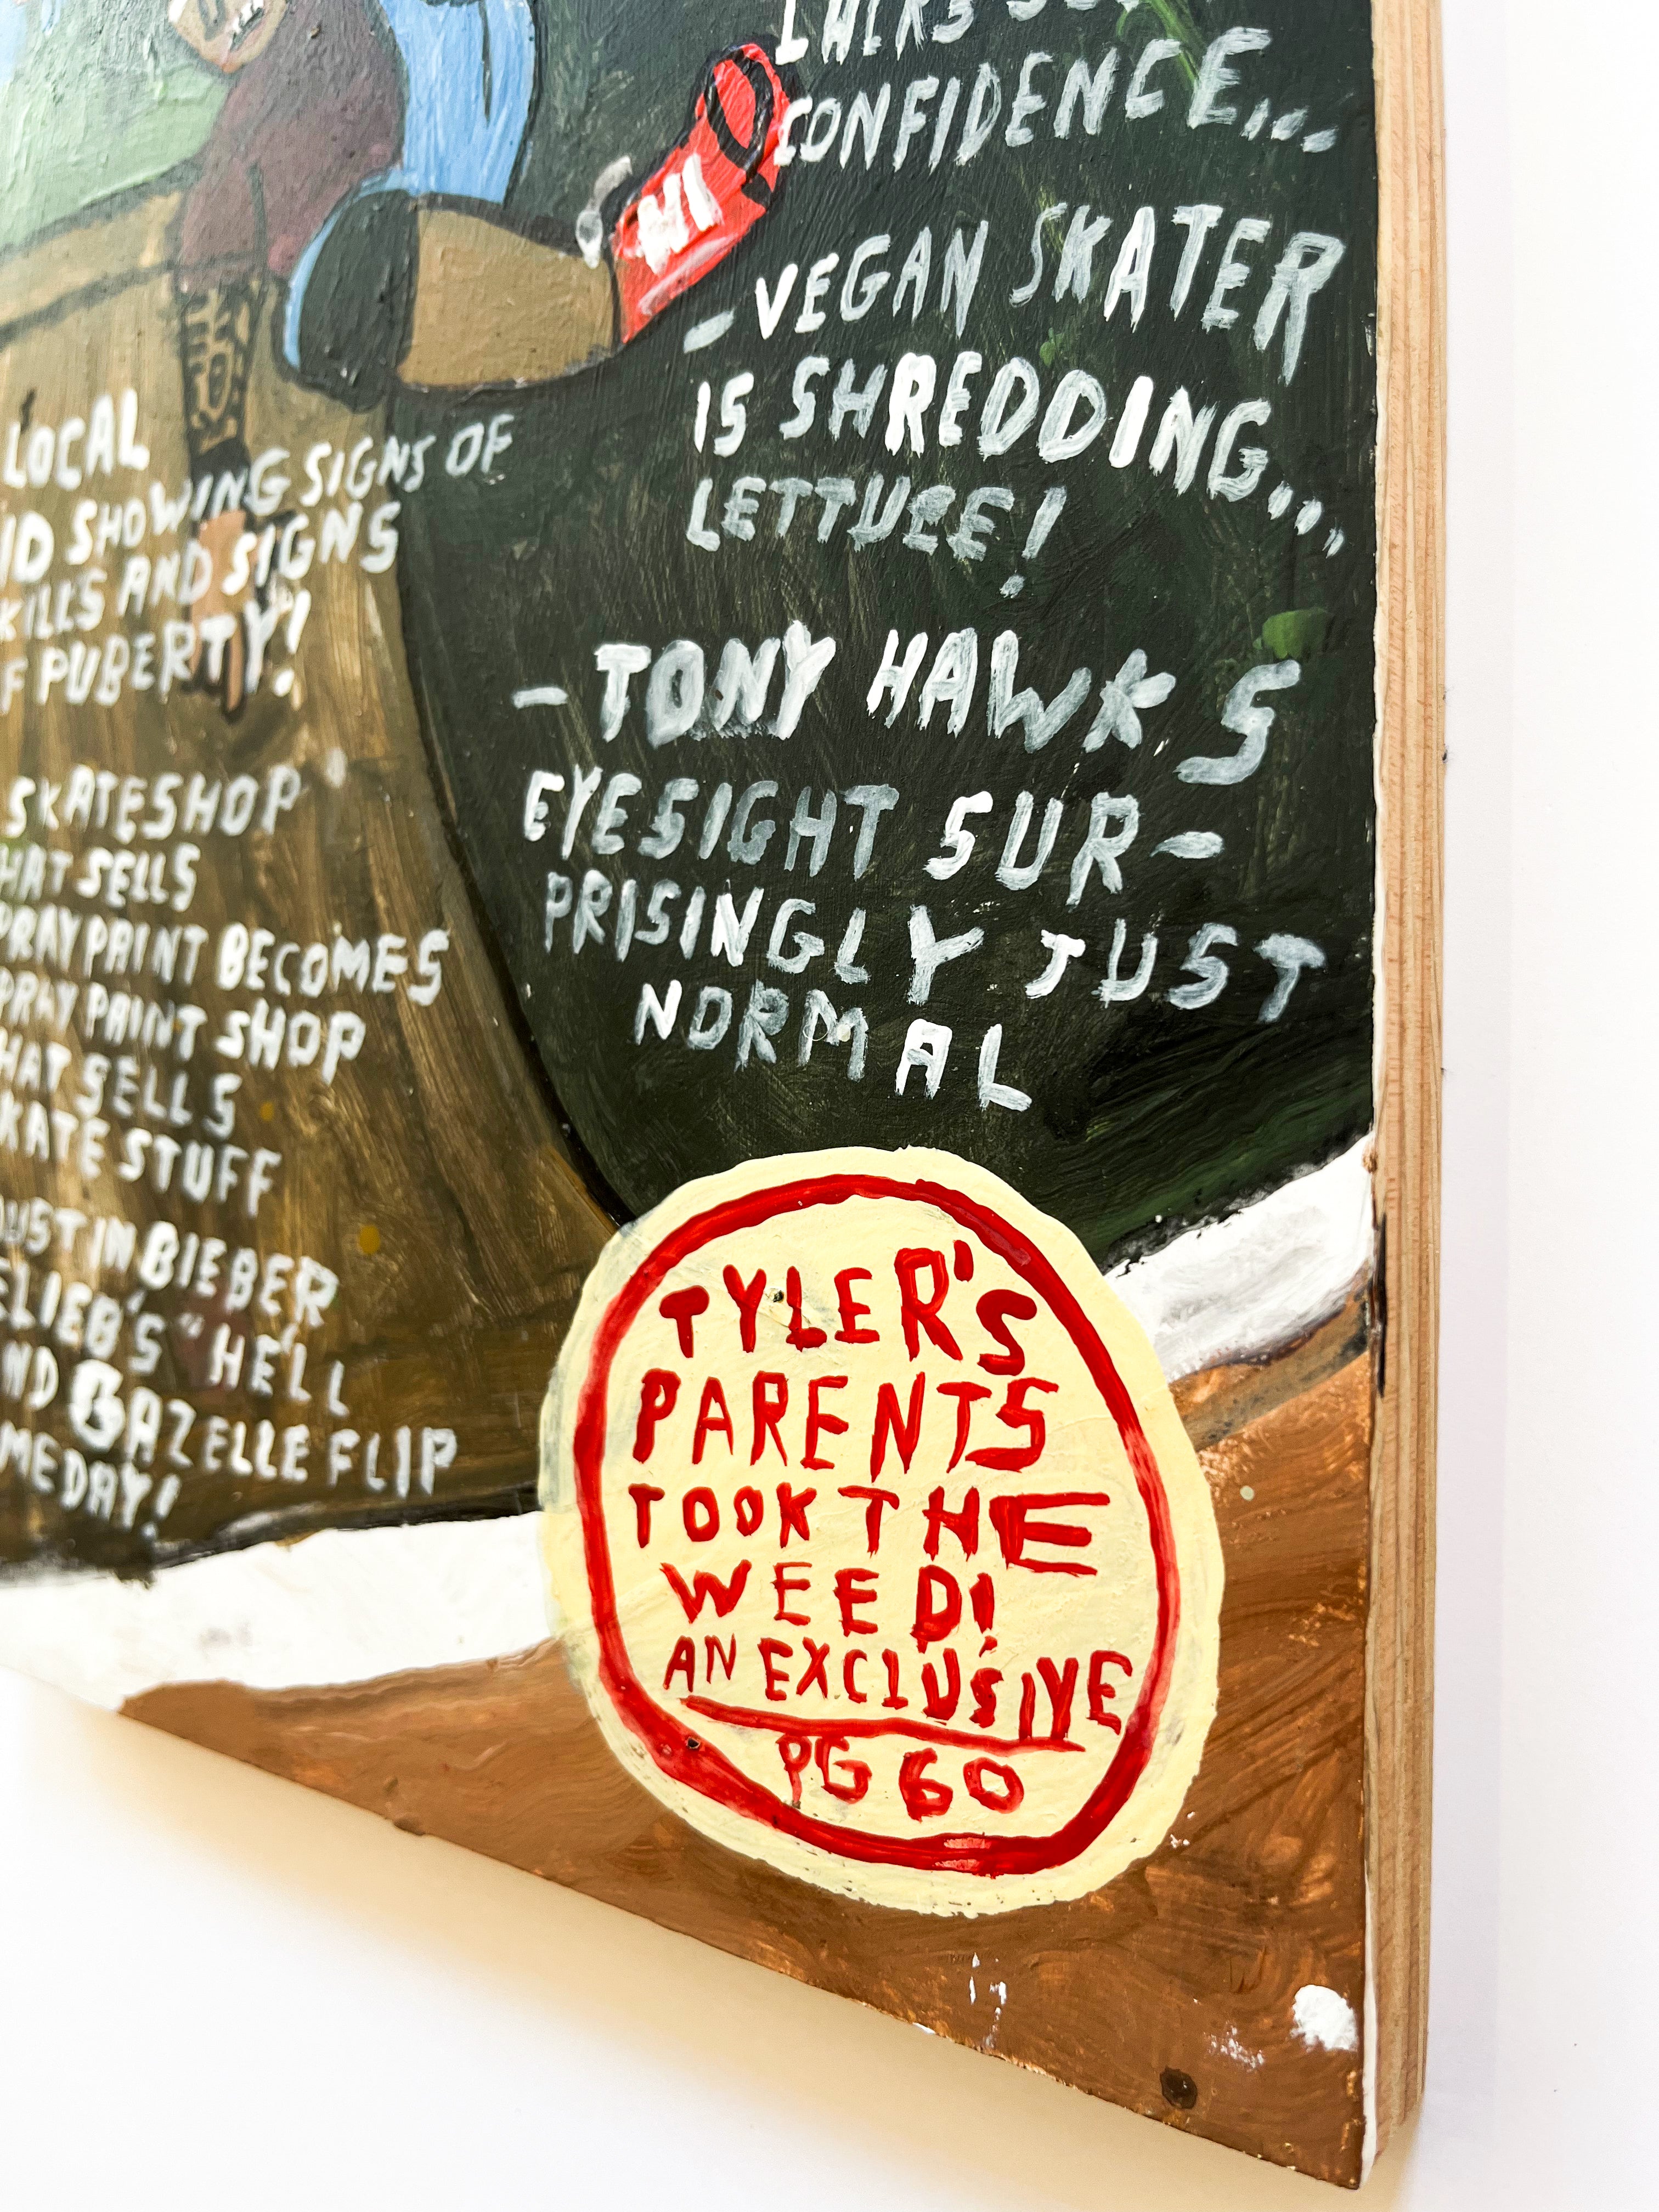 CONFIDENCE...
- VEGAN SKATER
IS SHREDDING...
LETTUCE!
- TONY HAWK'S
EYESIGHT SUR-
PRISINGLY JUST
NORMAL
HI
LOCAL
SHOWING SIGNS OF
AND SIGNS
PUBERTY!
SKATESHOP
SELLS
PAINT BECOMES
PAINT SHOP
SELLS
STUFF
BIEBER
"HELL
GAZELLE FLIP
TYLER'S
PARENTS
TOOK THE
WEED!
AN EXCLUSIVE
PG 60